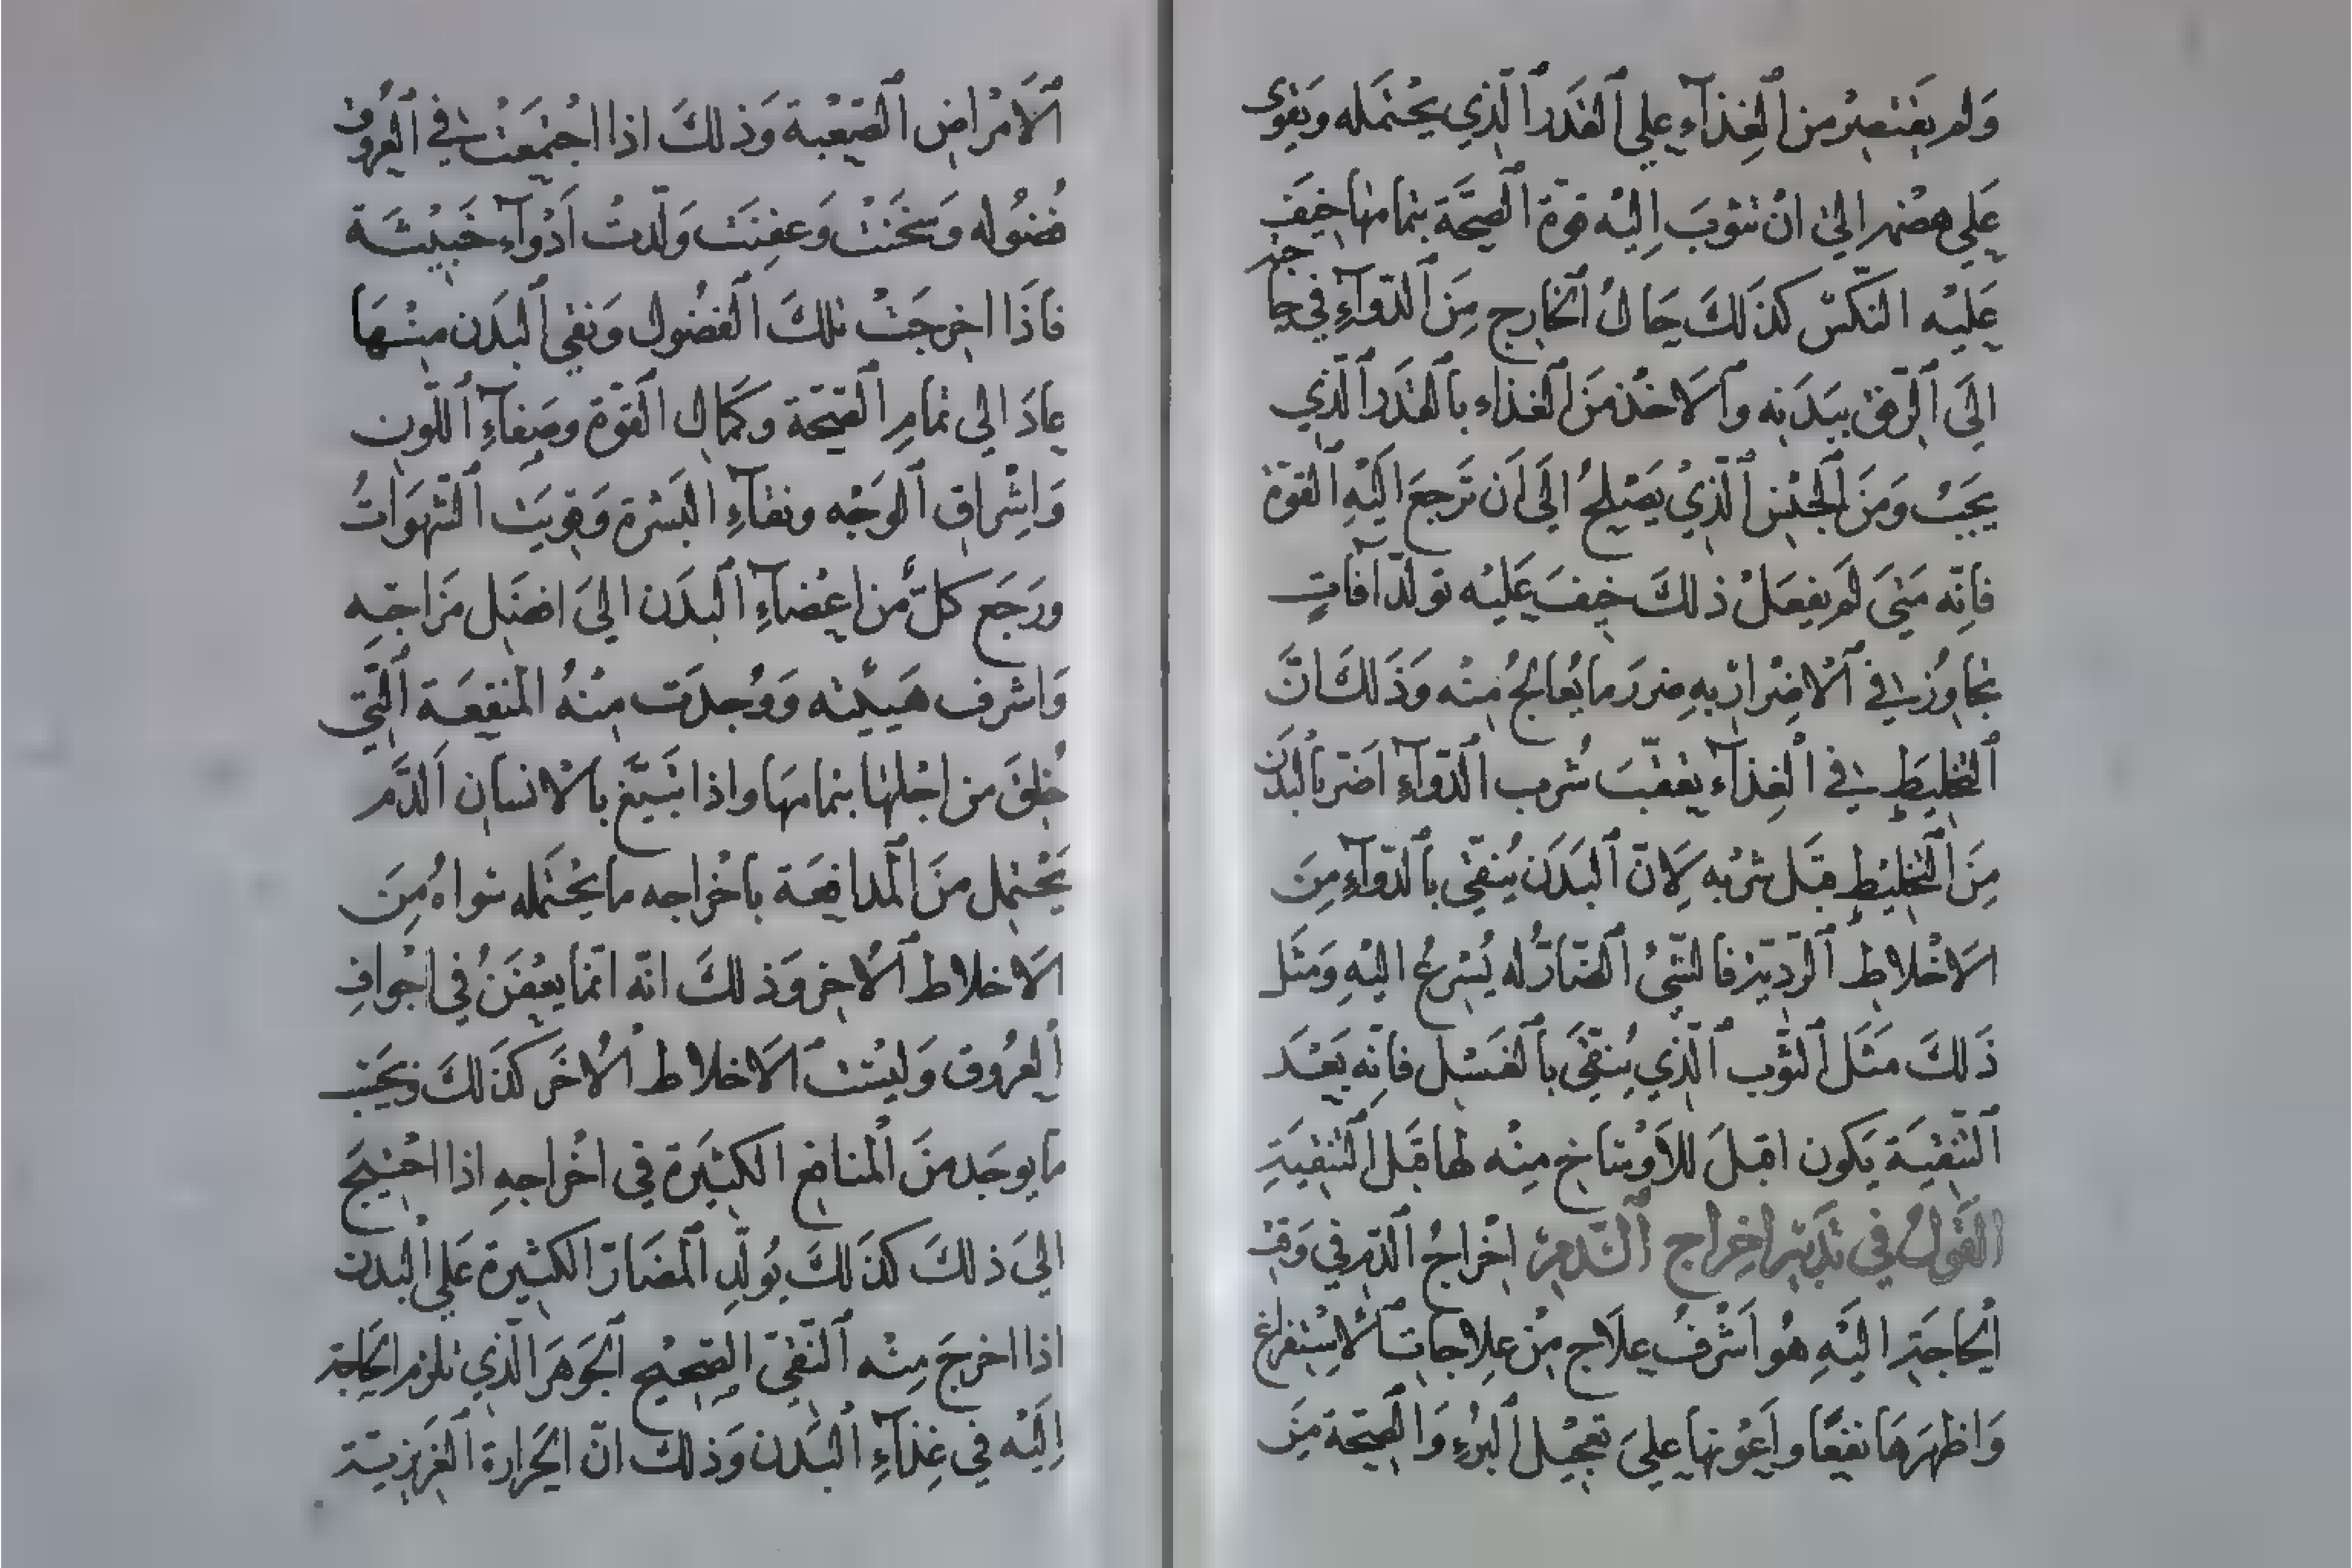 وَلم يَقْتصِرْ من اَلغِذآءِ علي اَلقَدَر اَلّذِي يحْتمَله وَيقوى
عَلي هضْمه اليٰ انْ تثوْبَ اِليْه قوّة اَلصِحَّة بتمامها خِيفَ
عَليْه النَكسْ كذَلكَ حَالُ اَلخارِج مِنَ اَلدّوآءِ في حاجته
الَى اَلِرّفق ببَدَنه وَاَلاخذ مَنَ اَلغذاء باَلقَدَر اَلّذي
يجَبُ وَمنَ اَلجنْس اَلّذِيْ يَصْلحُ الَى اَن تَرجعَ الَيْهِ اَلقوّة
فاِنّه مَتىَ لَم يفعَلْ ذلكَ خِيفَ عَليْه تولّد آفاتٍ
تجاوُز في اَلاضْرار بهِ ضررَ ما يُعَالجُ منْه وَذَلكَ انَّ
اَلتخلِيطِ في الغِذآء يعَقّبَ شُرب اَلدّوآءِ اَضرّ باَلبَدَن
مِنَ اَلتخْليْطِ قبَل شربْه لِاَنّ اَلبَدَن يُنقّي باَلدّوآءِ مِنَ
الاخْلاطِ اَلرّديّة فالشَئُ اَلضّارّ له يُسْرعُ اليْهِ وَمثَل
ذَلكَ مثَل اَلثوْب اَلّذِي يُنقّىَ باَلغَسْل فانّه بَعْدَ
اَلتّنقيَة يَكون اقبلَ للاَوْسَاخ منْه لها قبَل اَلتّنقيَةِ
القَوْلُ في تدبيْر اخراج اَلدّم اخْراجُ اَلدّم في وَقتِ
اَلحاجَة اليَهِ هُو اَشرْفُ عِلَاج مِنْ علِاجاتَ اَلاِسْتفراغ
وَاظهَرهَا نفعًا واَعْونها علىَ تعجْيل اَلبرُءِ وَالصِحّة مِنَ
اَلاَمرْاض اَلصّعْبة وَذلكَ اذا اجْتمعَتْ في اَلعُرُوق
فُضوُله وَسخَنتْ وَعفِنَت وَلّدتْ اَدْوآء خَبيْثَة
فاَذَا اخرجَتْ تلكَ اَلفضُول وَنقي اَلبدَن منْهَا
عادَ الي تمامِ اَلصّحّة وكَمال اَلقوّة وصَفآءِ اَللّون
وَاِشْراق اَلوَجْه ونقآءِ البَشرة وَقويَت اَلشّهَوَاتُ
ورَجَع كلّ من اعْضآءِ اَلبدَن اليَ افضَل مزَاجِه
وَاشرف هَيئته وَوُجدَت منْهُ المنفعَة اَلّتي
خُلِقَ من اجْلها بتمامهَا واذا تَبَيّغ باَلانسان اَلدَّم
يَحْتمِل منَ اَلمدافِعَة باخْراجه ما يحْتمَله سواهُ مِنَ
الاخلاط اَلاُخر وَذلكَ انّه انّما يعْفَنُ في اجْوافِ
اَلعرُوق وَليْسَت اَلاخلاط اَلاُخَر كذَلكَ وَيحَسَب
ما يوجَد منَ اَلمنافع الكثيَرة في اخْراجهِ اذا احْتيجَ
اليَ ذلكَ كذَلكَ يُولّدِ اَلمَضَارّ الكثيْرة عَلي اَلبَدن
اذا اخرجَ مِنْه اَلنّقيّ الصّحيْح اَلجَوهَر الّذي تلزم الحَاجة
اِليْه في غِذآءِ اَلبَدن وَذلكَ انّ الحَرارة اَلغَريزيّة